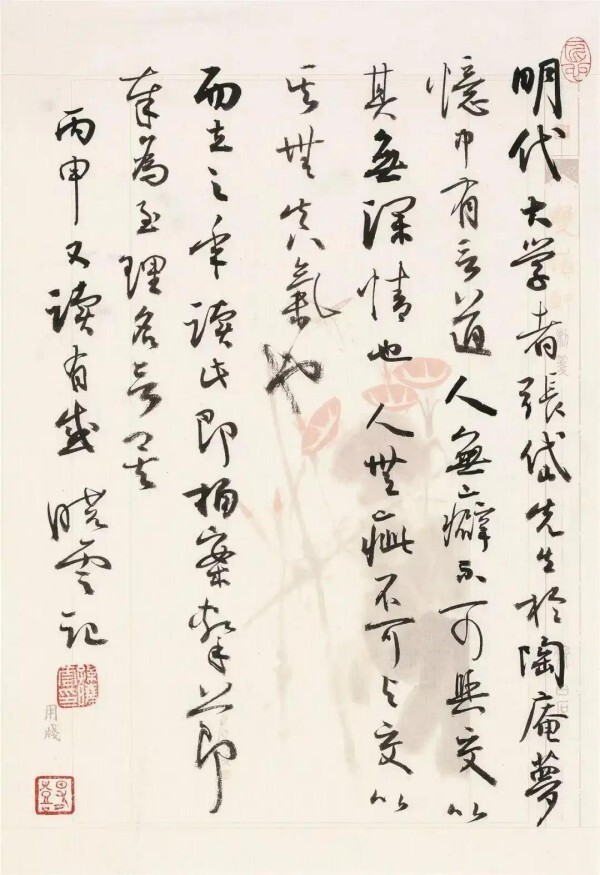 明代大学者張岱先生於陶庵夢
憶中有言道人無癖不可與交以
其無深情也人無疵不可与交以
其無真氣也
而立之年读此即拍案击节
奉為至理名言矣
丙申又读有感 晓雲记
用牋